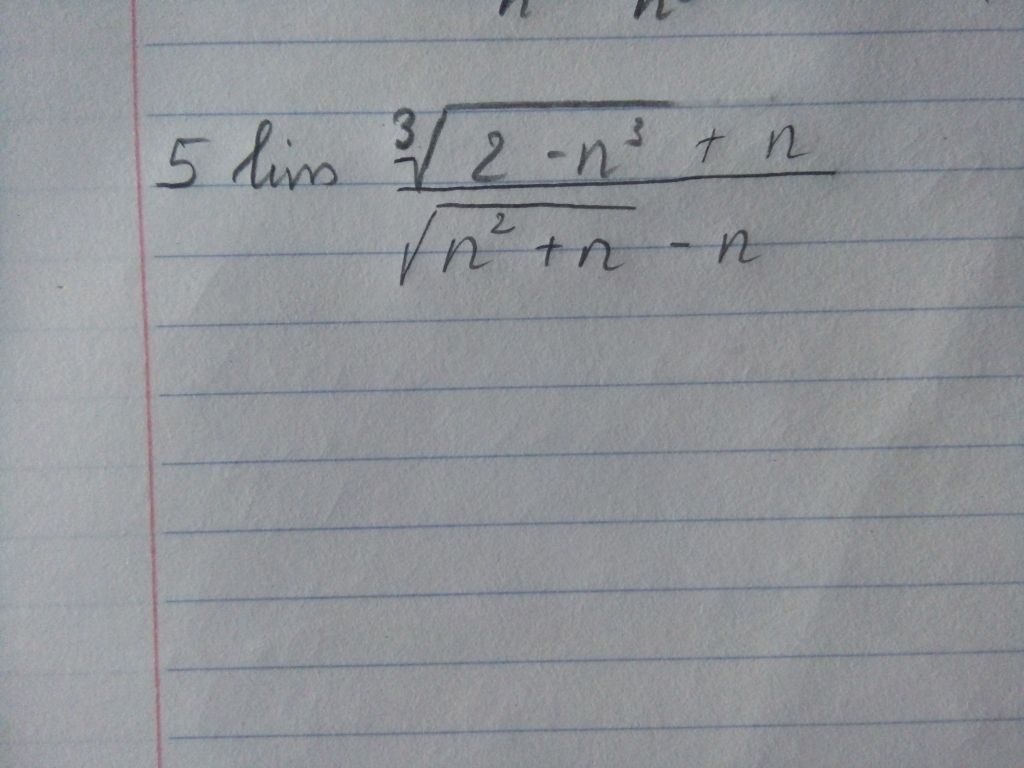 5 lim \frac{\sqrt[3]{2 - n^3} + n}{\sqrt{n^2 + n} - n}